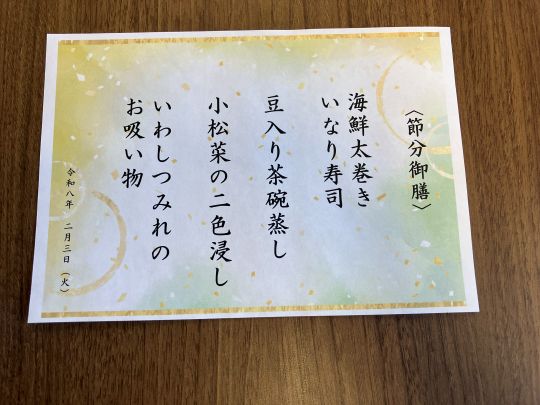 〈節分御膳〉
海鮮太巻き
いなり寿司
豆入り茶碗蒸し
小松菜の二色浸し
いわしつみれの
お吸い物
令和八年 二月三日（火）